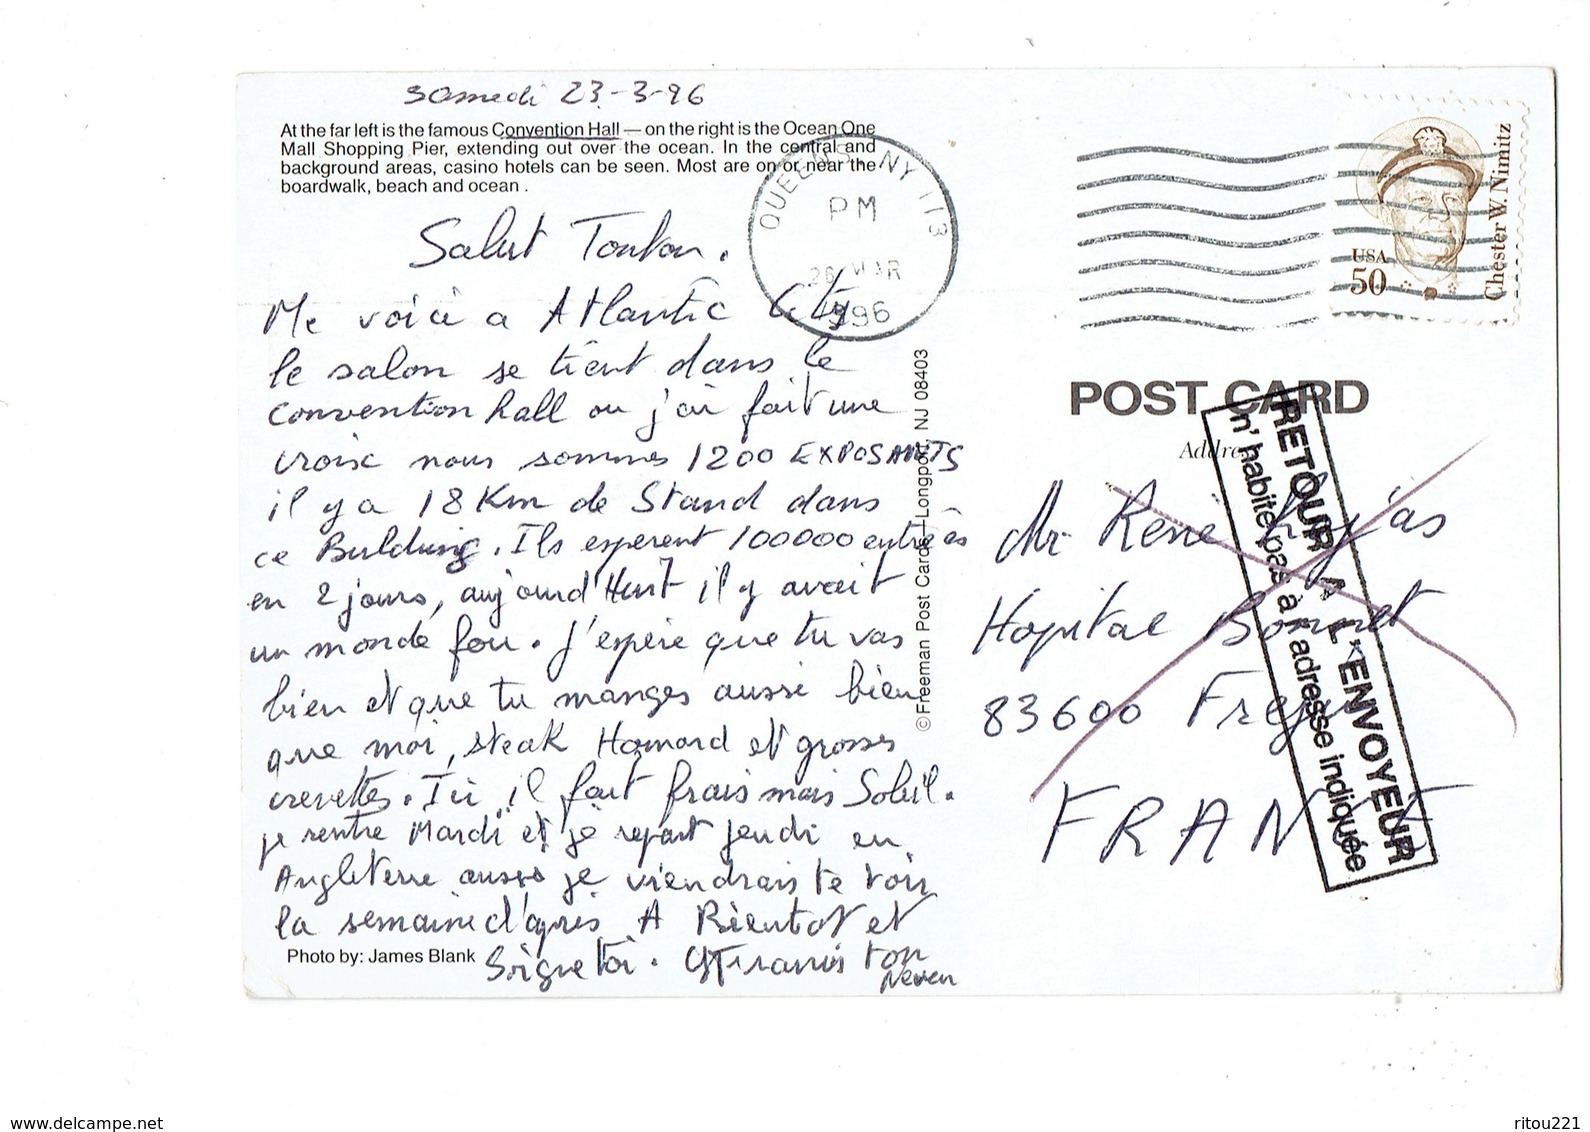 samedi 23-3-96
At the far left is the famous Convention Hall — on the right is the Ocean One
Mall Shopping Pier, extending out over the ocean. In the central and
background areas, casino hotels can be seen. Most are on or near the
boardwalk, beach and ocean .
Salut Tonton.
Me voici a Atlantic City
le salon se tient dans le
convention hall ou j'ai fait une
croix nous sommes 1200 EXPOSANTS
il y a 18 Km de Stand dans
ce Building. Ils esperent 100000 entrées
en 2 jours, aujourd'Huit il y avait
un monde fou. J'espère que tu vas
bien et que tu manges aussi bien
que moi, steak Homard et grosses
crevettes. Ici, il fait frais mais Soleil.
je rentre Mardi et je repart jeudi en
Angleterre aussi je viendrais te voir
la semaine d'après A Bientot et
Soigne toi. Francis ton
neveu
Photo by: James Blank
QUEENS NY 113
PM
26 MAR
1996
©Freeman Post Cards—Longport, NJ 08403
USA
50
Chester W. Nimitz
POST CARD
Address
Mr René
Hopital Bonnet
83600 Frejus
FRANCE
RETOUR A L'ENVOYEUR
n'habite pas à l'adresse indiquée
www.delcampe.net
ritou221